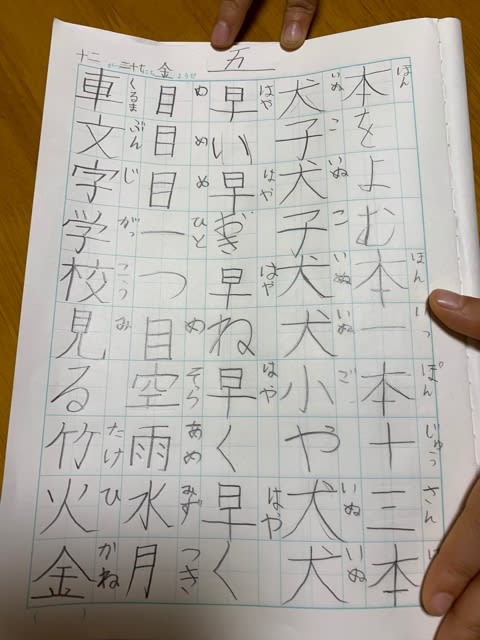 五
十二 金
本をよむ本一本十三本
ほん ほん いっ ぽん じゅう さん
犬子犬子犬犬小や犬犬
いぬ こ いぬ こ いぬ いぬ ご いぬ いぬ
早い早ぎ早ね早く早く
はや はや はや はや はや
目目目一つ目空雨水月
め め め ひと め そら あめ みず つき
車文字学校見る竹火金
くるま ぶん じ がっ こう み たけ ひ かね